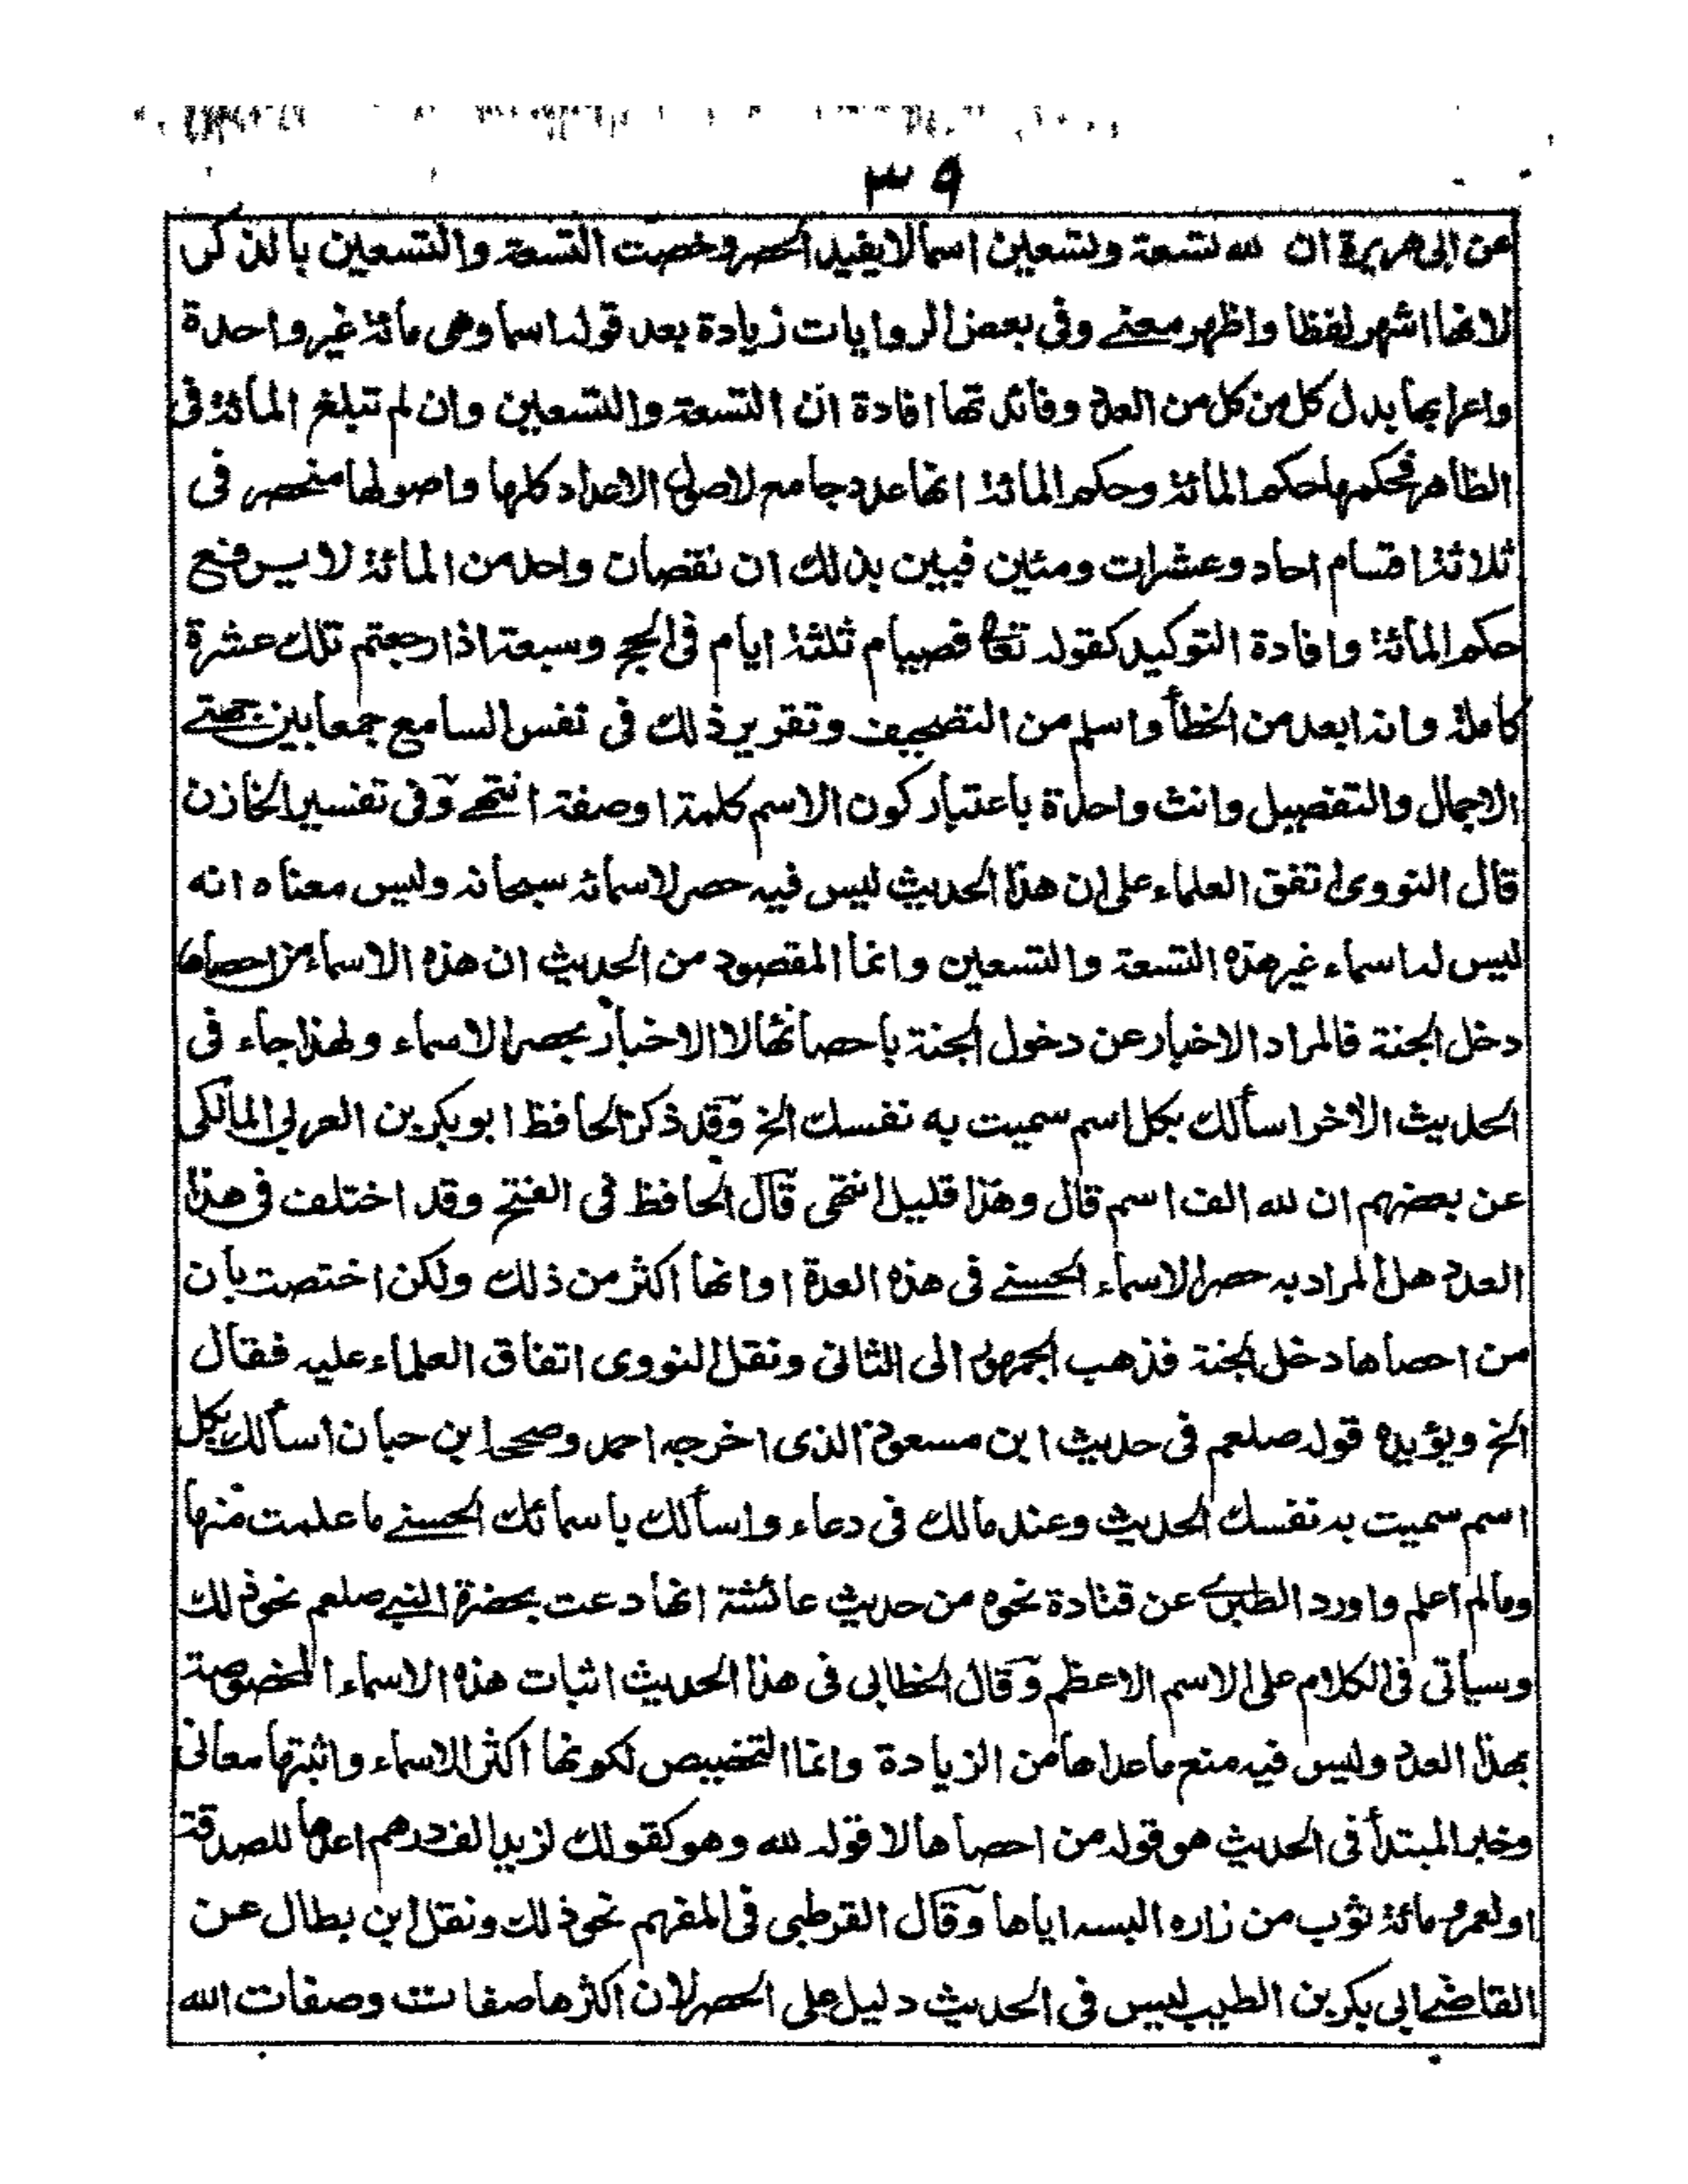 ٣٩
عن ابی هريرة ان لله تسعة وتسعين اسما لا يفيد الحصر وخصت التسعة والتسعين بالذكر
لانها اشهر لفظا واظهر معنے وفى بعض الروايات زيادة بعد قوله اسما وهى مائة غير واحدة
واعرابها بدل كل من كل من العدد وفائدتها افادة ان التسعة والتسعين وان لم تبلغ المائة فى
الظاهر فحكمها حكم المائة وحكم المائة انها عدد جامع لاصول الاعداد كلها واصولها منحصر فى
ثلاثة اقسام احاد وعشرات ومئين فبين بذلك ان نقصان واحد من المائة لا يرفع
حكم المائة وافادة التوكيد كقوله تعا فصيام ثلثة ايام فى الحج وسبعة اذا رجعتم تلك عشرة
كاملة وانه ابعد من الخطأ واسلم من التصحيف وتقرير ذلك فى نفس السامع جمعا بين جهتے
الاجمال والتفصيل وانث واحدة باعتبار كون الاسم كلمة او صفة انتهے وفى تفسير الخازن
قال النووى اتفق العلماء على ان هذا الحديث ليس فيه حصر لاسمائه سبحانه وليس معناه انه
ليس له اسماء غير هذه التسعة والتسعين وانما المقصود من الحديث ان هذه الاسماء من احصاها
دخل الجنة فالمراد الاخبار عن دخول الجنة باحصائها لا الاخبار بحصر الاسماء ولهذا جاء فى
الحديث الاخر اسألك بكل اسم سميت به نفسك الخ وقد ذكر الحافظ ابو بكر بن العربى المالكى
عن بعضهم ان لله الف اسم قال وهذا قليل انتهى قال الحافظ فى الفتح وقد اختلف فى هذا
العدد هل المراد به حصر الاسماء الحسنے فى هذه العدة او انها اكثر من ذلك ولكن اختصت بان
من احصاها دخل الجنة فذهب الجمهور الى الثانى ونقل النووى اتفاق العلماء عليه فقال
الخ ويؤيده قوله صلعم فى حديث ابن مسعود الذى اخرجه احمد وصححه ابن حبان اسألك بكل
اسم سميت به نفسك الحديث وعند مالك فى دعاء واسألك باسمائك الحسنے ما علمت منها
وما لم اعلم واورد الطبرى عن قتادة نحوه من حديث عائشة انها دعت بحضرة النبے صلعم نحو ذلك
وسيأتى فى الكلام على الاسم الاعظم وقال الخطابى فى هذا الحديث اثبات هذه الاسماء المخصوصة
بهذا العدد وليس فيه منع ما عداها من الزيادة وانما التخصيص لكونها اكثر الاسماء واثبتها معانى
وخبر المبتدأ فى الحديث هو قوله من احصاها لا قوله لله وهو كقولك لزيد الف درهم اعدها للصدقة
او لعمرو مائة ثوب من زاره البسه اياها وقال القرطبى فى المفهم نحو ذلك ونقل ابن بطال عن
القاضے ابى بكر بن الطيب ليس فى الحديث دليل على الحصر لان اكثرها صفات وصفات الله